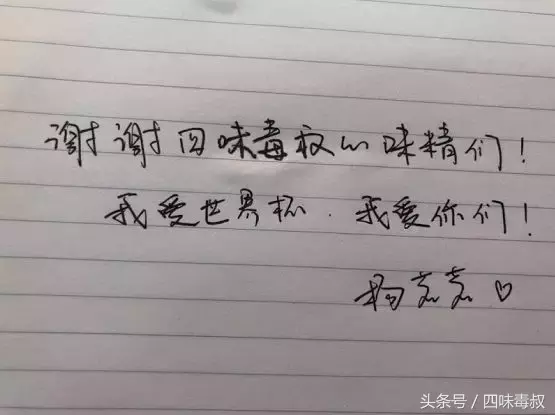 谢谢四味毒叔的味精们!
我爱世界杯.我爱你们!
杨芝芝♡
头条号/四味毒叔